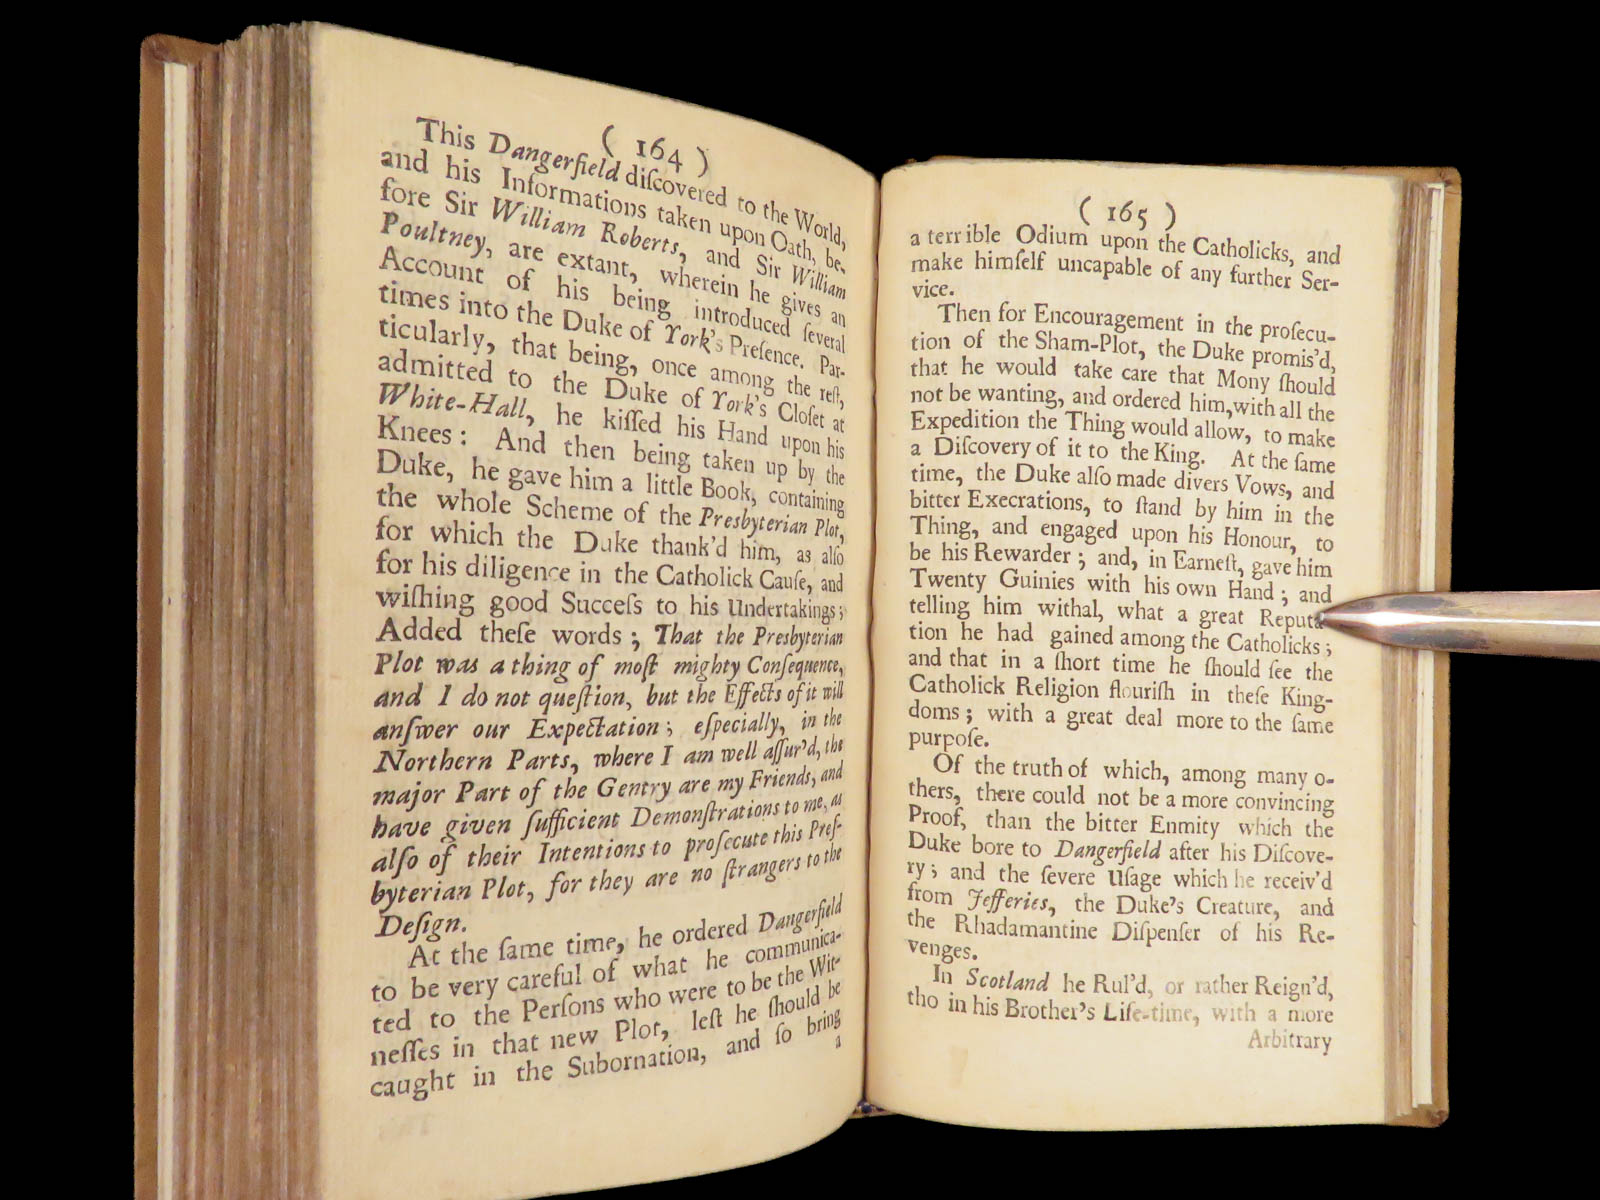 ( 164 )
This Dangerfield diſcovered to the World,
and his Informations taken upon Oath, be-
fore Sir William Roberts, and Sir William
Poultney, are extant, wherein he gives an
Account of his being introduced ſeveral
times into the Duke of York's Preſence. Par-
ticularly, that being, once among the reſt,
admitted to the Duke of York's Cloſet at
White-Hall, he kiſſed his Hand upon his
Knees: And then being taken up by the
Duke, he gave him a little Book, containing
the whole Scheme of the Presbyterian Plot,
for which the Duke thank'd him, as alſo
for his diligence in the Catholick Cauſe, and
wiſhing good Succeſs to his Undertakings;
Added theſe words; That the Presbyterian
Plot was a thing of moſt mighty Conſequence,
and I do not queſtion, but the Effects of it will
anſwer our Expectation; eſpecially, in the
Northern Parts, where I am well aſſur'd, the
major Part of the Gentry are my Friends, and
have given ſufficient Demonſtrations to me, as
alſo of their Intentions to proſecute this Preſ-
byterian Plot, for they are no ſtrangers to the
Deſign.
At the ſame time, he ordered Dangerfield
to be very careful of what he communica-
ted to the Perſons who were to be the Wit-
neſſes in that new Plot, leſt he ſhould be
caught in the Subornation, and ſo bring
a
( 165 )
a terrible Odium upon the Catholicks, and
make himſelf uncapable of any further Ser-
vice.
Then for Encouragement in the proſecu-
tion of the Sham-Plot, the Duke promis'd,
that he would take care that Mony ſhould
not be wanting, and ordered him, with all the
Expedition the Thing would allow, to make
a Diſcovery of it to the King. At the ſame
time, the Duke alſo made divers Vows, and
bitter Execrations, to ſtand by him in the
Thing, and engaged upon his Honour, to
be his Rewarder; and, in Earneſt, gave him
Twenty Guinies with his own Hand; and
telling him withal, what a great Reputa
tion he had gained among the Catholicks;
and that in a ſhort time he ſhould ſee the
Catholick Religion flouriſh in theſe King-
doms; with a great deal more to the ſame
purpoſe.
Of the truth of which, among many o-
thers, there could not be a more convincing
Proof, than the bitter Enmity which the
Duke bore to Dangerfield after his Diſcove-
ry; and the ſevere Uſage which he receiv'd
from Jefferies, the Duke's Creature, and
the Rhadamantine Diſpenſer of his Re-
venges.
In Scotland he Rul'd, or rather Reign'd,
tho in his Brother's Life-time, with a more
Arbitrary